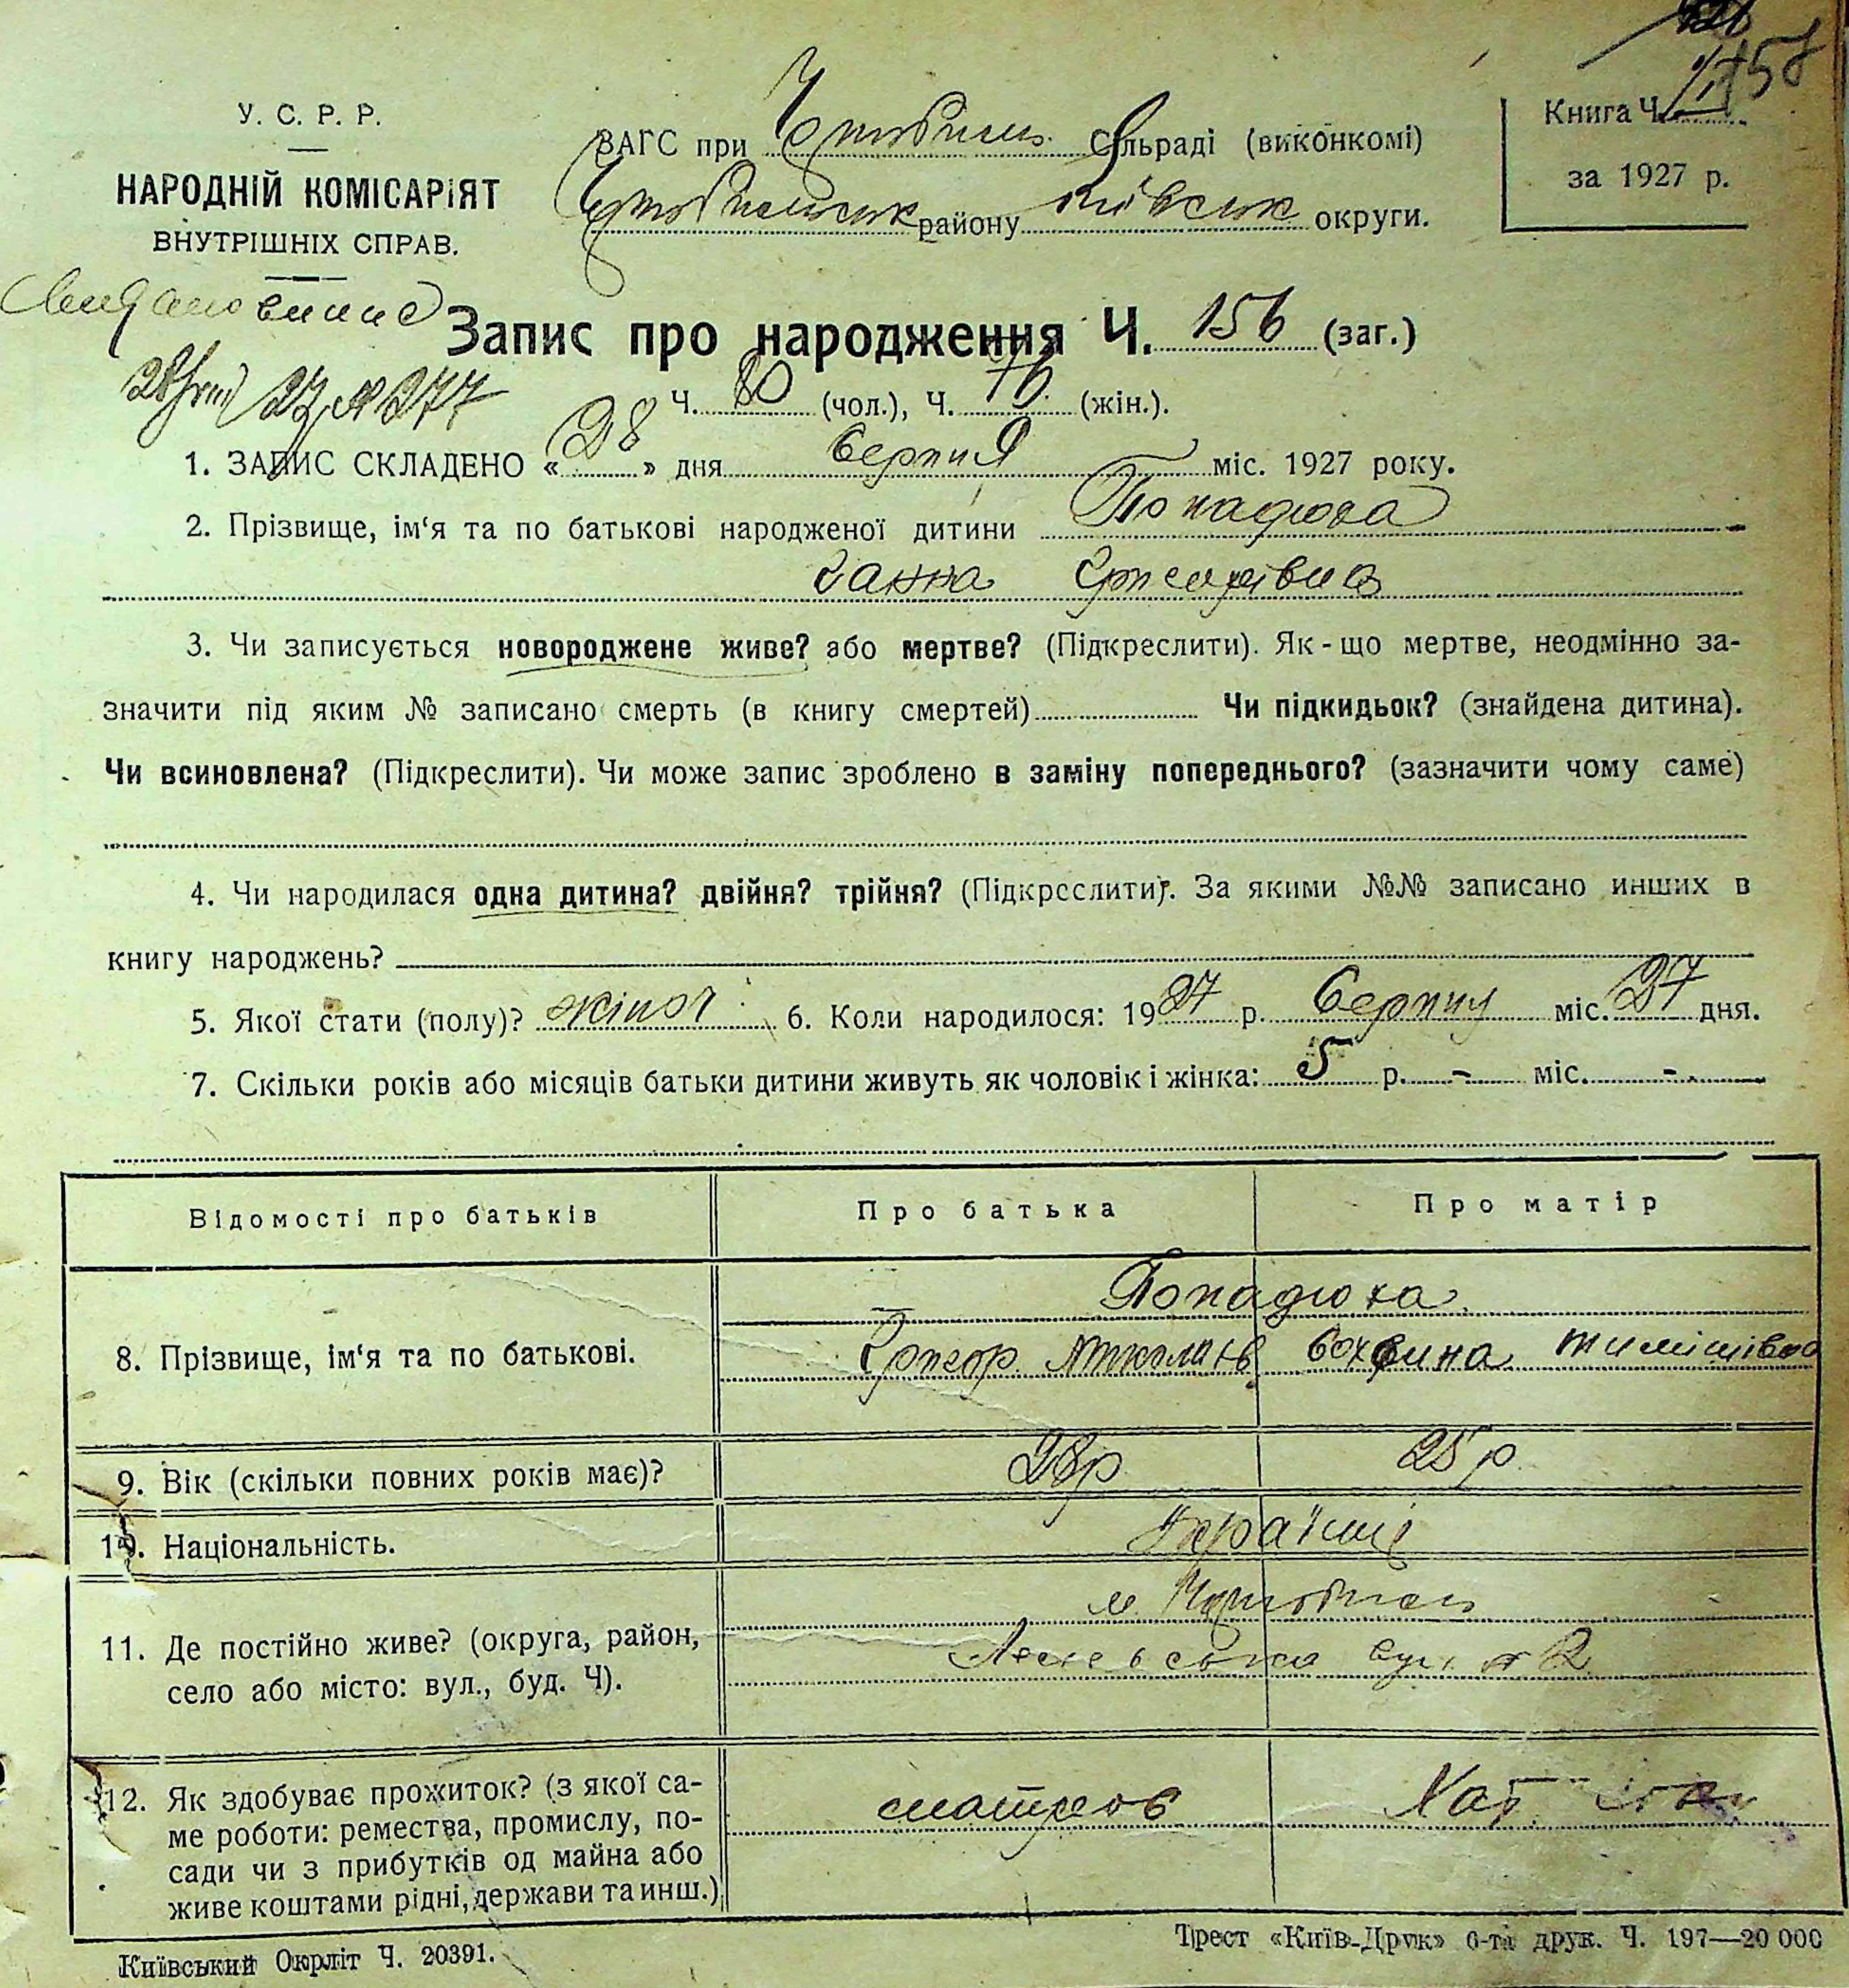 158
У. С. Р. Р.
НАРОДНІЙ КОМІСАРІЯТ
ВНУТРІШНІХ СПРАВ.
ЗАГС при Чорнобильс. Сільраді (виконкомі)
Чорнобильськ району Київськ округи.
Книга Ч.
за 1927 р.
28/VIII 27 № 277
Запис про народження Ч. 156 (заг.)
Ч. 80 (чол.), Ч. 76 (жін.).
1. ЗАПИС СКЛАДЕНО «28» дня Серпня міс. 1927 року.
2. Прізвище, ім‘я та по батькові народженої дитини Попадюха
Ганна Григорівна
3. Чи записується новороджене живе? або мертве? (Підкреслити). Як-що мертве, неодмінно за-
значити під яким № записано смерть (в книгу смертей) Чи підкидьок? (знайдена дитина).
Чи всиновлена? (Підкреслити). Чи може запис зроблено в заміну попереднього? (зазначити чому саме)
4. Чи народилася одна дитина? двійня? трійня? (Підкреслити). За якими №№ записано инших в
книгу народжень?
5. Якої стати (полу)? жіноч 6. Коли народилося: 1927 р. Серпня міс. 27 дня.
7. Скільки років або місяців батьки дитини живуть як чоловік і жінка: 5 р. - міс. -
Відомості про батьків Про батька Про матір
Попадюха
8. Прізвище, ім‘я та по батькові. Григор Микола Євхвина Тимішівна
9. Вік (скільки повних років має)? 28р 25р
10. Національність. Українці
м. Чорнобиль
11. Де постійно живе? (округа, район,
село або місто: вул., буд. Ч). вул. № 2
12. Як здобуває прожиток? (з якої са-
ме роботи: ремества, промислу, по-
сади чи з прибутків од майна або
живе коштами рідні, держави та инш.)
матрос Хат
Київський Окрліт Ч. 20391.
Трест «Київ-Друк» 6-та друк. Ч. 197—20 000